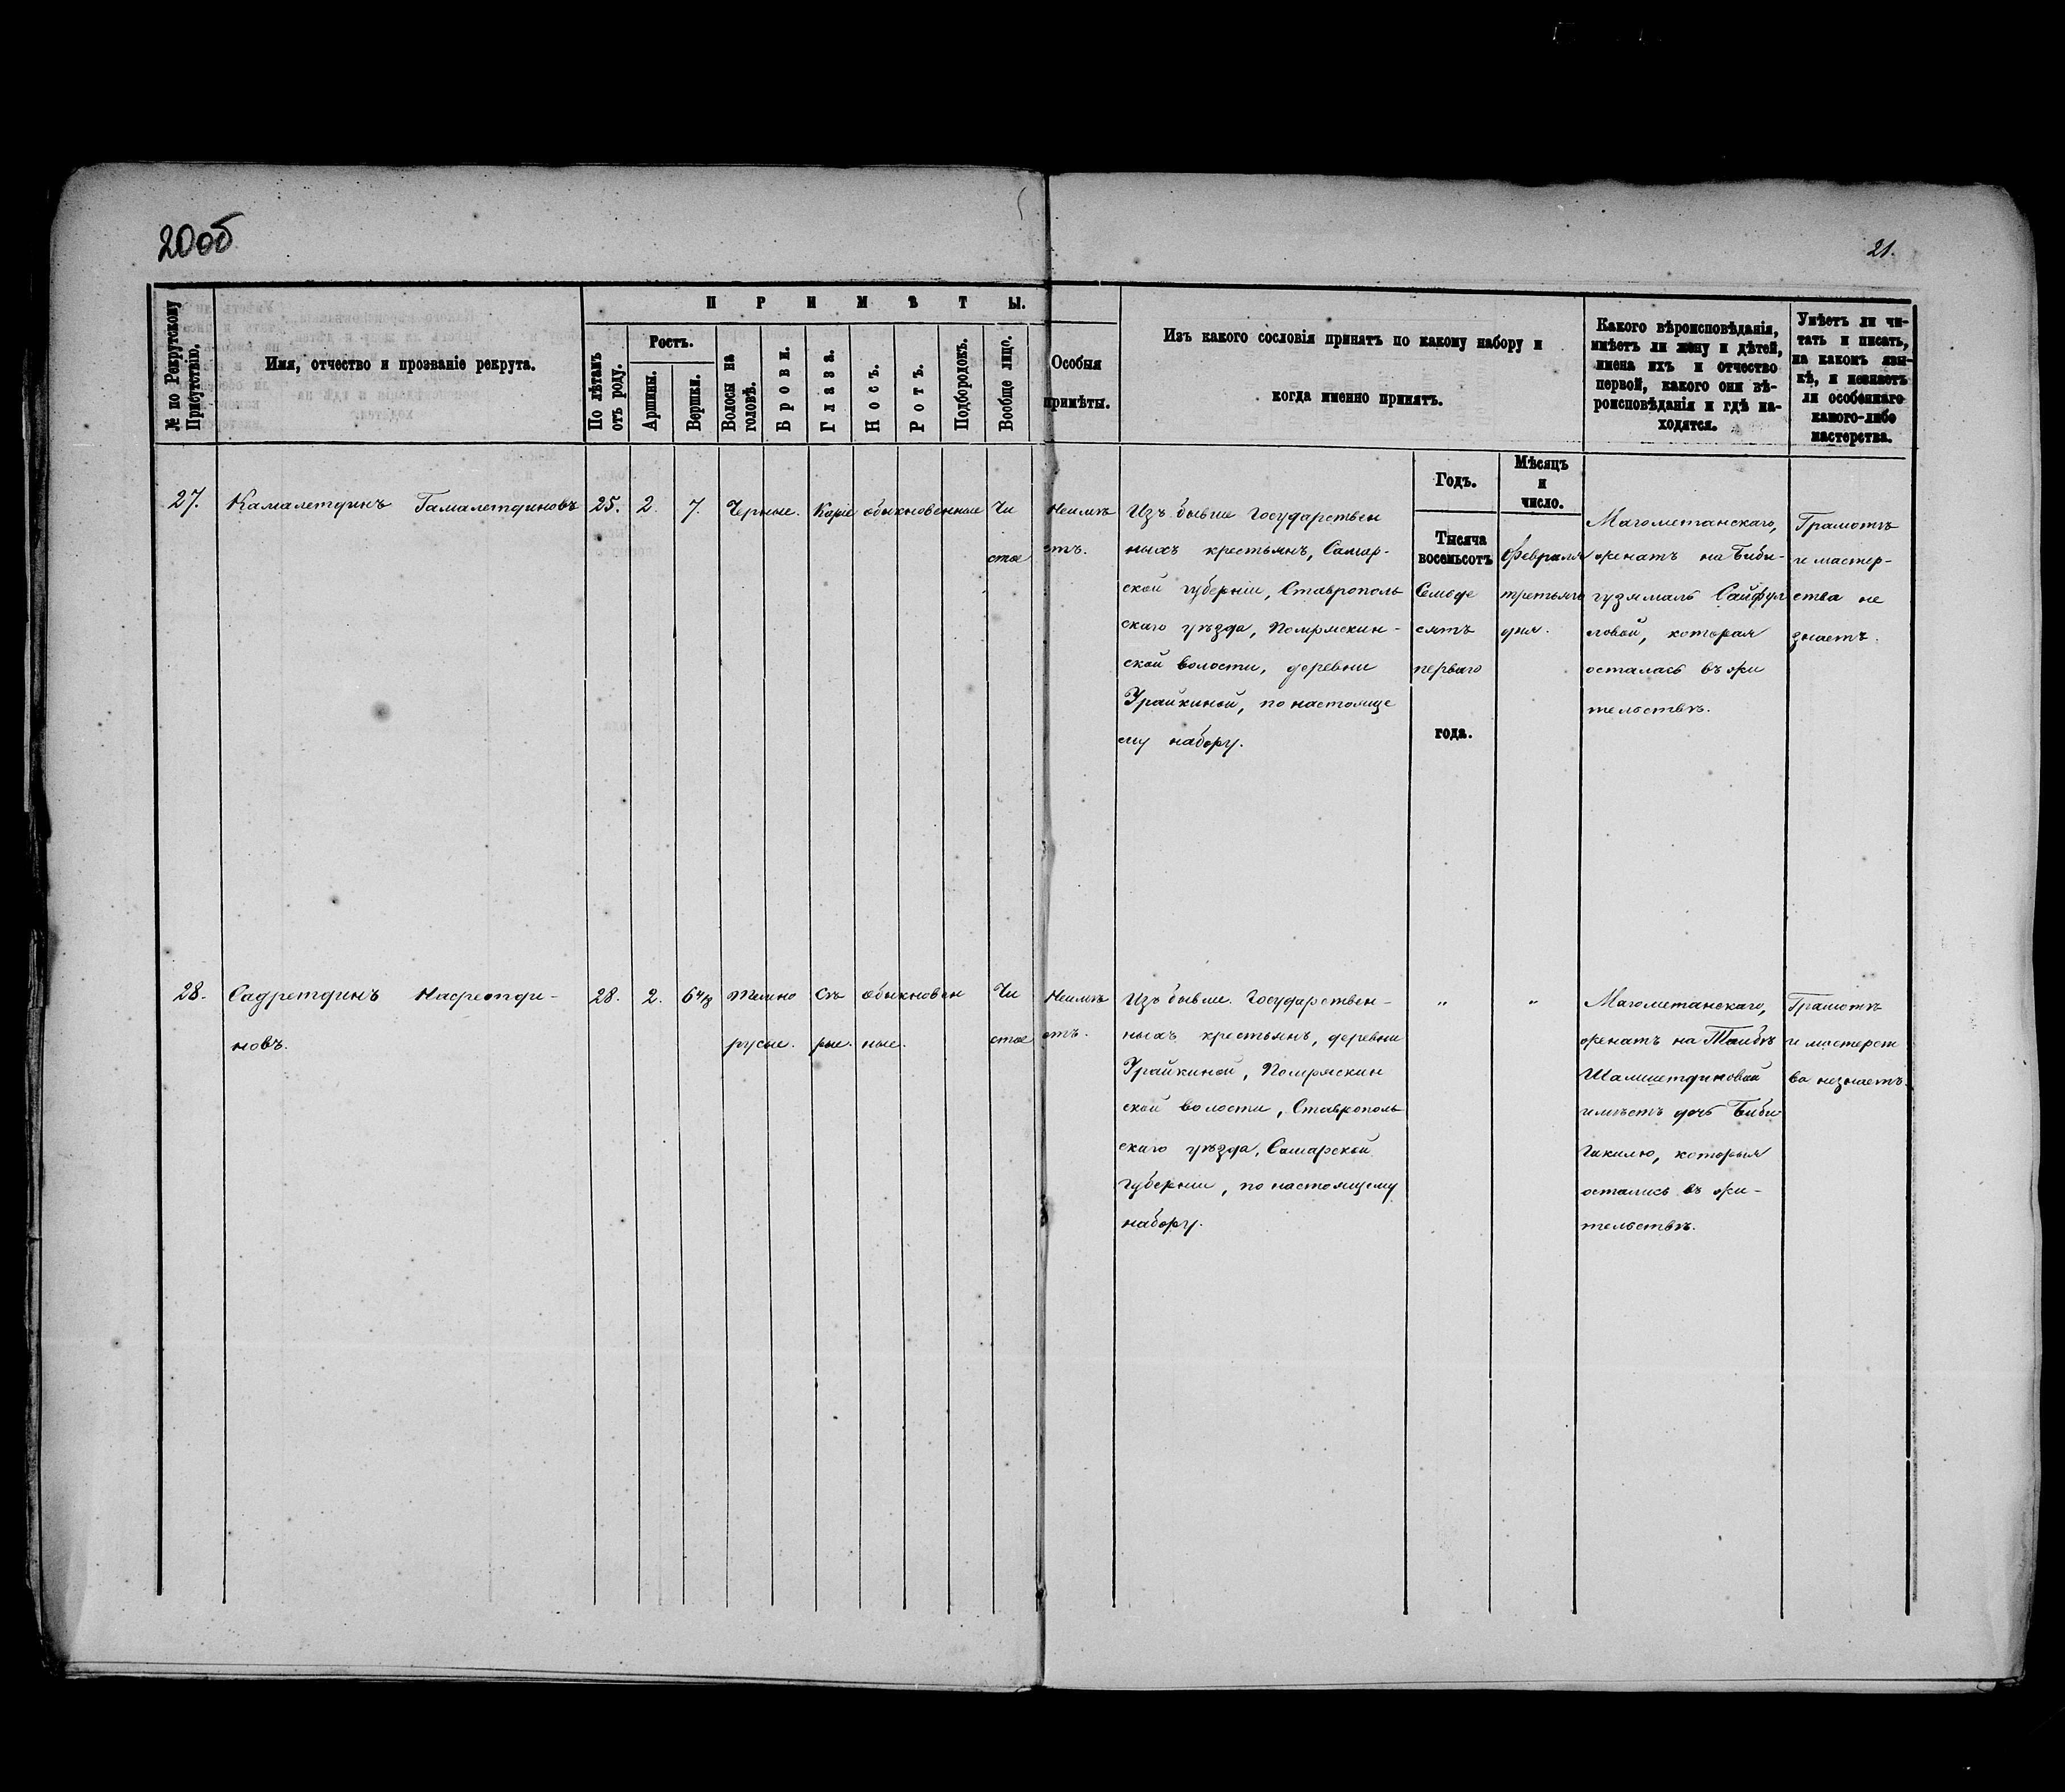 20об
21.
№ по Рекрутскому Присутствію.
Имя, отчество и прозваніе рекрута.
ПРИМѢТЫ.
По лѣтамъ отъ роду.
Ростъ.
Аршины.
Вершки.
Волосы на головѣ.
Брови.
Глаза.
Носъ.
Ротъ.
Подбородокъ.
Вообще лицо.
Особыя
примѣты.
Изъ какого сословія принятъ по какому набору и
когда именно принятъ.
Какого вѣроисповѣданія,
имѣетъ ли жену и дѣтей,
имена ихъ и отчество
первой, какого они вѣ-
роисповѣданія и гдѣ на-
ходятся.
Умѣетъ ли чи-
тать и писать,
на какомъ язы-
кѣ, и незнаетъ
ли особеннаго
какого-либо
мастерства.
Годъ.
Мѣсяцъ
и
число.
27.
Камалетдинъ Гамалетдиновъ
25.
2.
7.
Черные.
Каріе
обыкновенные
Чи
стое
Неимѣ
етъ.
Изъ бывше Государствен
ныхъ крестьянъ, Самар-
ской губерніи, Ставрополь
скаго уѣзда, Помряскин-
ской волости, деревни
Урайкиной, по настояще
му набору.
Тысяча
восемьсотъ
Семьде
сятъ
перваго
года.
Февраля
третьяго
дня.
Магометанскаго,
женатъ на Биби-
гузямаль Сайфул
ловой, которая
осталась въ жи
тельствѣ.
Грамотѣ
и мастер-
ства не
знаетъ.
28.
Садретдинъ Насретди-
новъ.
28.
2.
6 4/8
Темно
русые.
Сѣ
рые.
обыкновен
ные.
Чи
стое
Неимѣ
етъ.
Изъ бывше. Государствен-
ныхъ крестьянъ, деревни
Урайкиной, Помряскин
ской волости, Ставрополь
скаго уѣзда, Самарской
губерніи, по настоящему
набору.
"
"
Магометанскаго,
женатъ на Таибѣ
Шамшетдиновой
имѣетъ дочь Биби
Гакилю, которыя
остались въ жи-
тельствѣ.
Грамотѣ
и мастерст
ва незнаетъ.